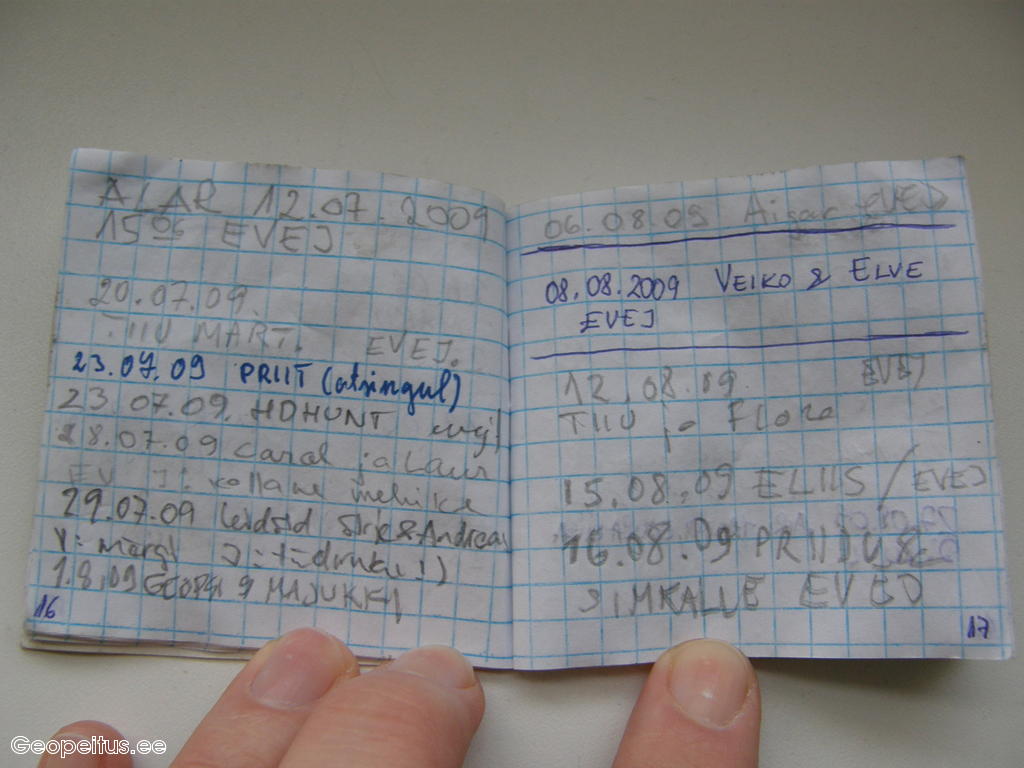 ALAR 12.07.2009
15 05 EVEJ
20.07.09.
TIIU MART. EVEJ.
23.07.09 PRIIT (otsingul)
23 07.09. HOHUNT evej
28.07.09 Carol ja Lauri
EV J: kollane
29.07.09 leidsid Sirje & Andreas
V: märgi J:
1.8.09 & MAJUKKA
16
06.08.09 Aigar EVEJ
08.08.2009 VEIKO & ELVE
EVEJ
12.08.09. EVEJ
TIIU ja Flora
15.08.09 ELIIS / EVEJ
16.08.09 PRIIDU &
SIMKALLE EVEJ
17
Geopeitus.ee